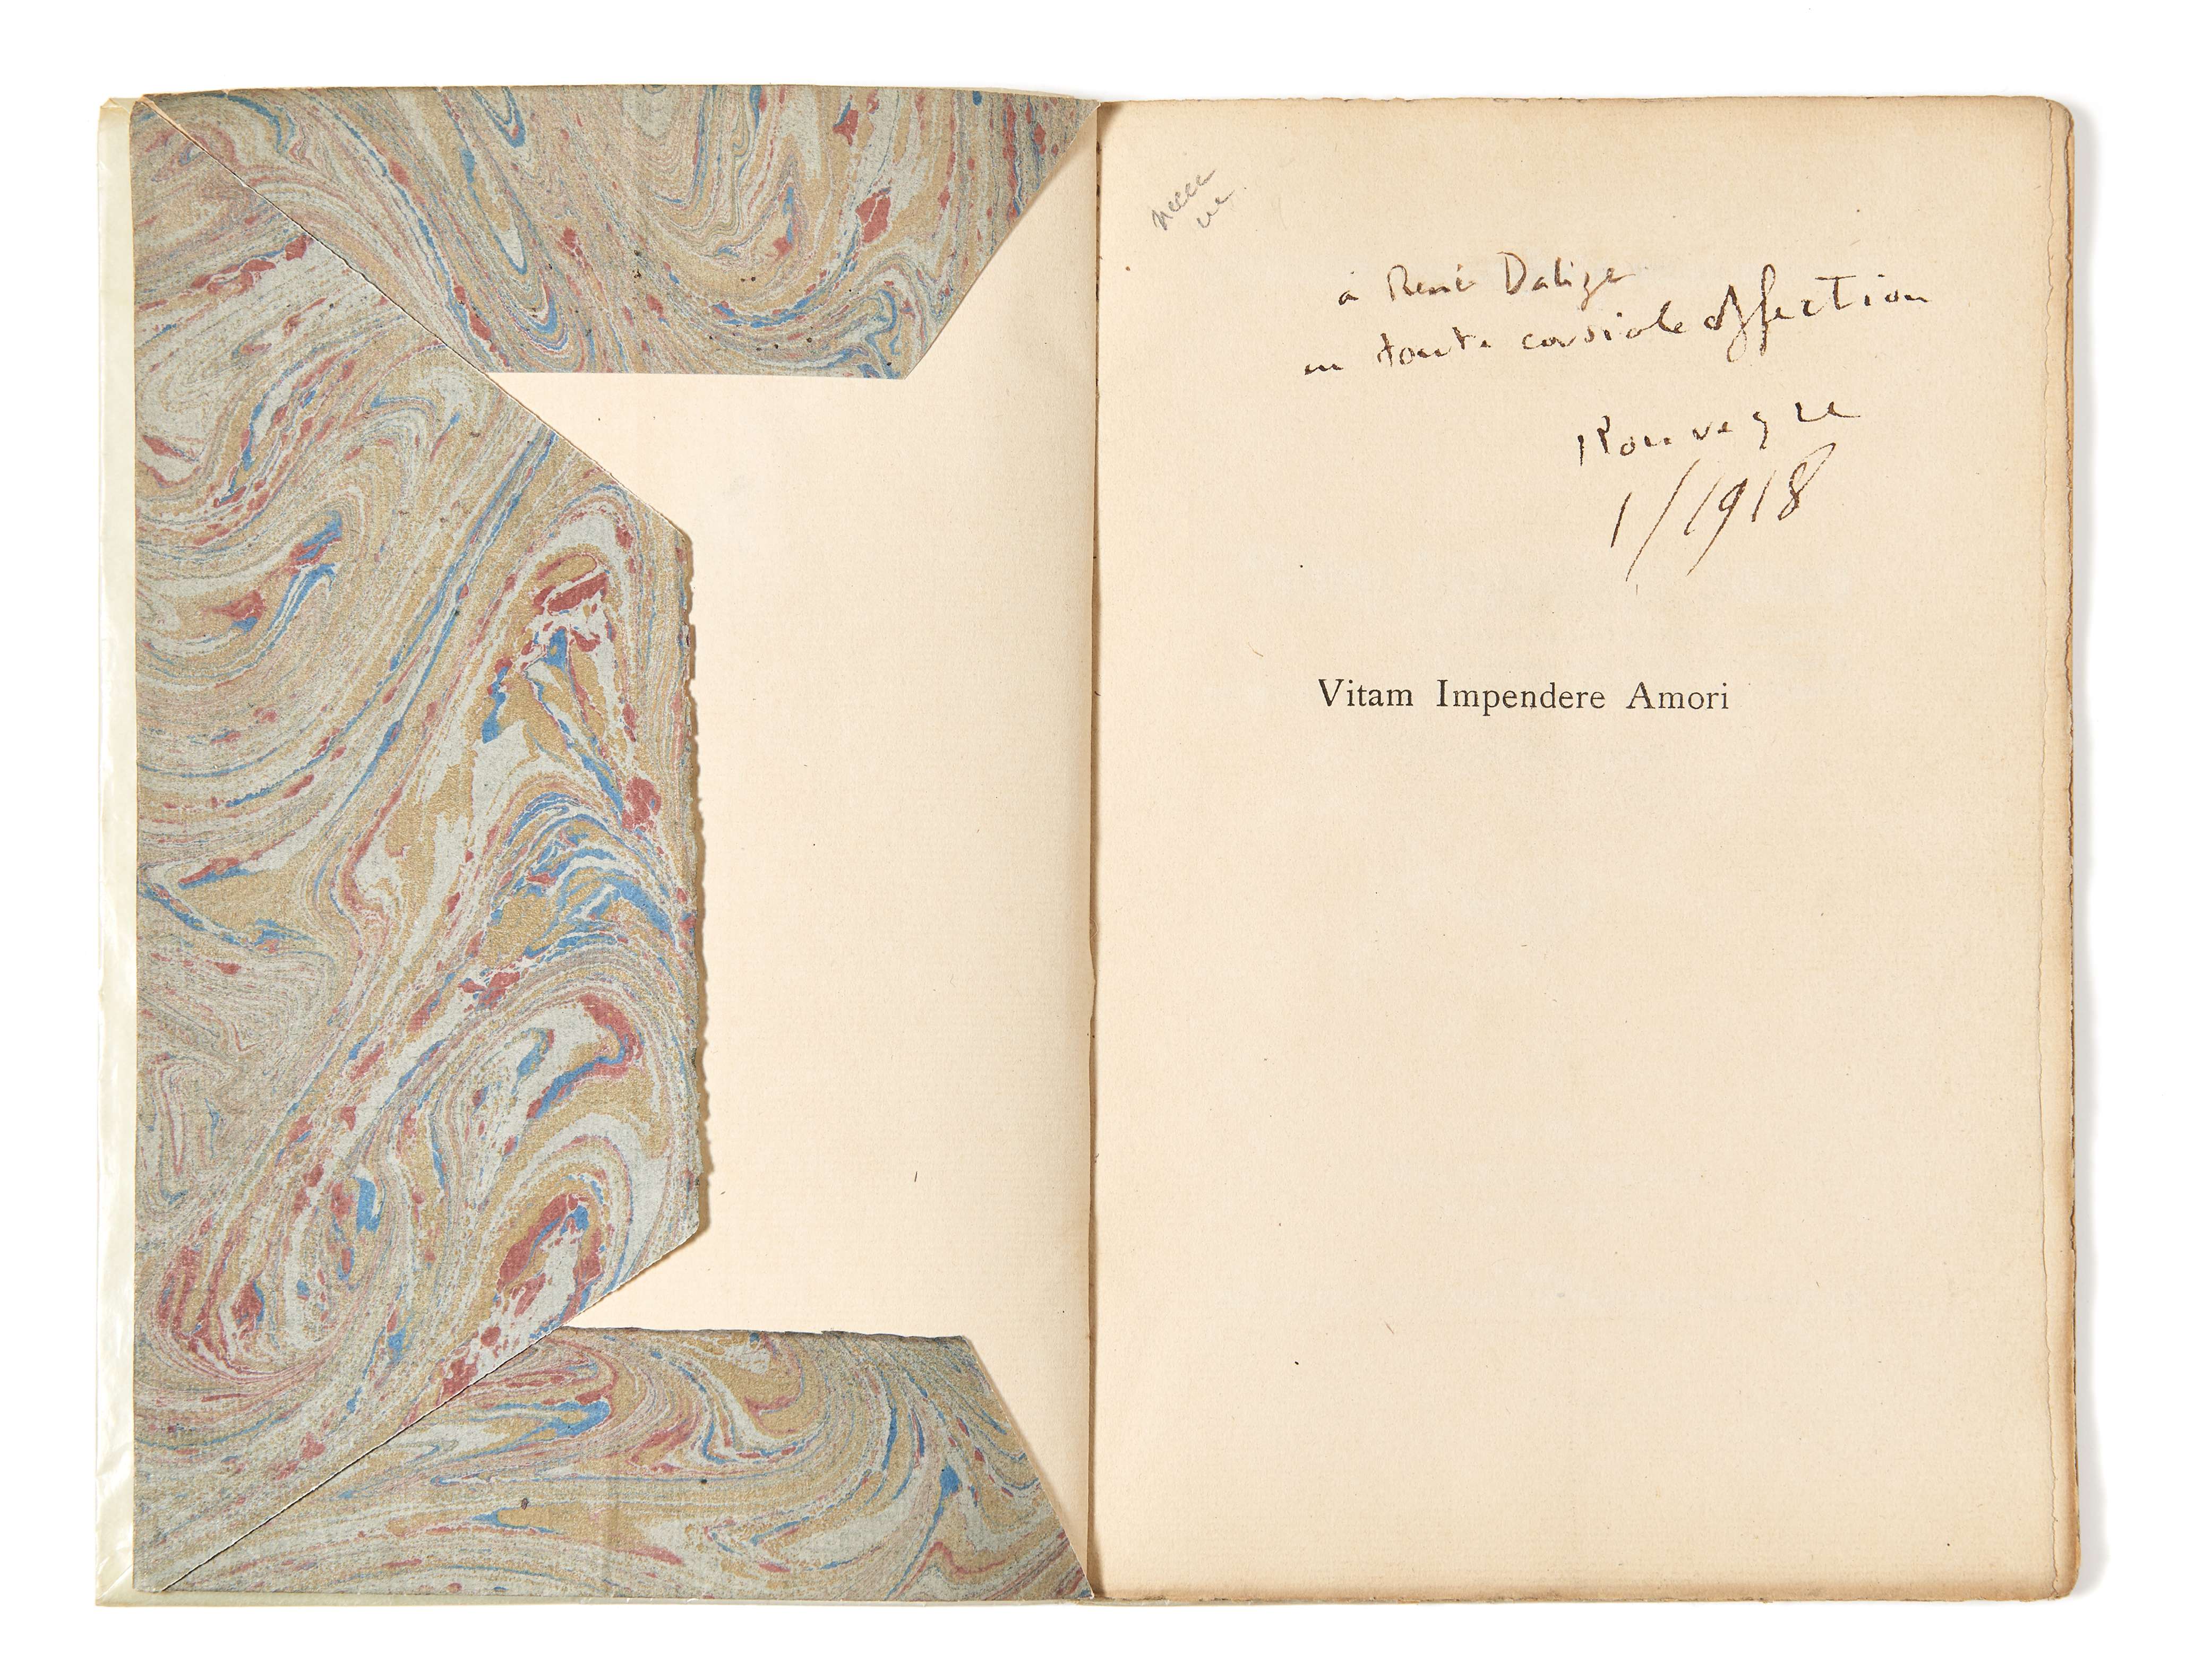 à René Dalize
en toute cordiale affection
Rouveyre
1/1918
Vitam Impendere Amori